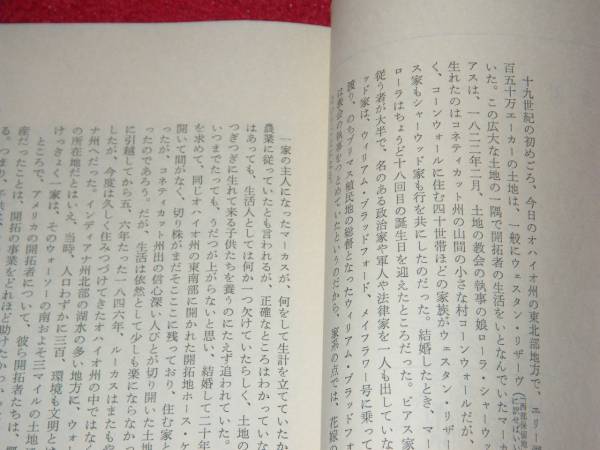 十九世紀の初めごろ、今日のオハイオ州の東北部地方で、エリー
百五十万エーカーの土地は、一般にウェスタン・リザーヴ（西部保留地
いた。この広大な土地の一隅で開拓者の生活をいとなんでいたマーカ
アスは、一八二二年二月、土地の教会の執事の娘ローラ・シャーウッ
生れたのはコネティカット州の山間の小さな村コーンウォールだが、
く、コーンウォールに住む四十世帯ほどの家族がウェスタン・リザー
ス家もシャーウッド家も行を共にしたのだった。結婚したとき、マー
ローラはちょうど十八回目の誕生日を迎えたところだった。ピアス家
従う者が大半で、名のある政治家や軍人や法律家を一人も出していな
ッド家は、ウィリアム・ブラッドフォード、メイフラワー号に乗って
渡り、のちプリマス植民地の総督となったウィリアム・ブラッドフォ
は教会の執事をつとめていたというのだから、家系の点では、花嫁の
一家の主人になったマーカスが、何をして生計を立てていたか
農業に従っていたとも言われるが、正確なところはわかっていな
はあっても、生活人としては何か一つ欠けていたらしく、土地の
つぎつぎに生れて来る子供たちを養うのにたえず追われていた。
いつまでたっても、うだつが上がらないと思い、結婚して二十年
を求めて、同じオハイオ州の東南部に開かれた開拓地ホース・ケ
開いて間がなく、切り株がまだそこここに残っており、住む家と
ったが、コネティカット州出の信心深い人びとが切り開いた土地
ったのであろう。だが、生活は依然として少しも楽にならなかっ
に引越してから五、六年たった一八四六年、ルーカスはまたもや
したが、今度は久しく住みつづけてきたオハイオ州の中ではなく
ナ州へだった。インディアナ州北部の湖水の多い地方に、ウォー
の所在地だとはいえ、当時、人口わずかに三百、環境も文明とは
けっきょく一家は、そのウォーソーの南およそ三マイルの土地
ところで、アメリカの開拓者について、彼ら開拓者たちは、
産だったことは、開拓の事業をどれほど助けたか
る。つまり、子供は